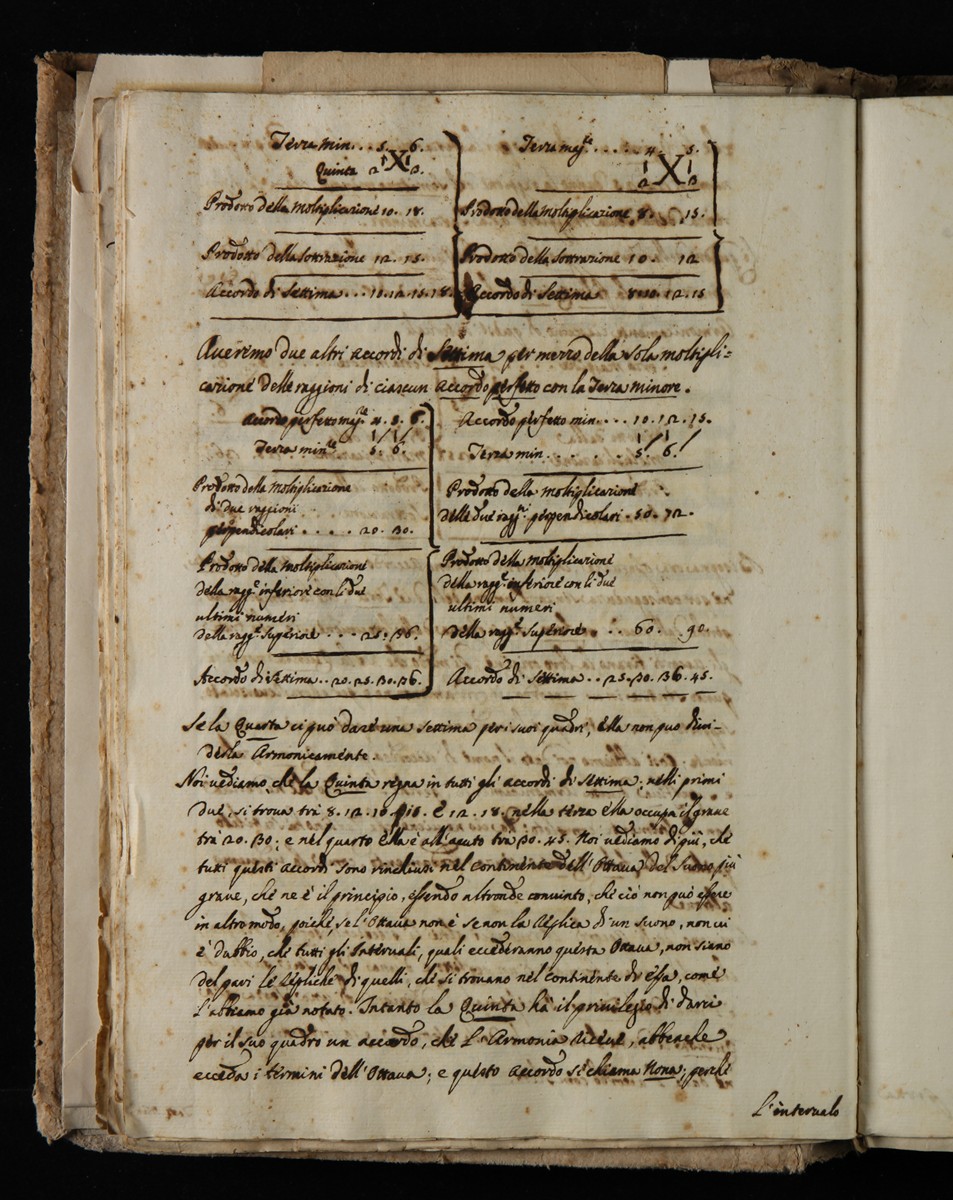 Terza min. . . 5. 6.
Quinta 2 X 3.
Prodotto della moltiplicazione 10. 18.
Prodotto della sottrazione 12. 15.
Accordo di Settima . . . 10. 12. 15. 18.
Terza magre. . . . . . 4. 5.
2 X 3
Prodotto della moltiplicazione 8. 15.
Prodotto della sottrazione 10. 12
Accordo di Settima 8. 10. 12. 15
Averemo due altri accordi di Settima per mezzo della sola moltipli=
cazione delle raggioni di ciascun accordo perfetto con la Terza minore.
Accordo perfetto magre. 4. 5. 6.
Terza minre. 5. 6.
Prodotto della moltiplicazione
di due raggioni
perpendicolari . . . . . 20. 30.
Prodotto della moltiplicazione
della ragge. inferiore con li due
ultimi numeri
della ragge. superiore . . . 25. 36.
Accordo di Settima . . 20. 25. 30. 36.
Accordo perfetto min. . . . 10. 12. 15.
Terza min. . . . . . 5. 6.
Prodotto della moltiplicazione
delle due raggni. perpendicolari. 50. 72.
Prodotto della moltiplicazione
della ragge. inferiore con li due
ultimi numeri
della ragge. superiore . . . 60. 90.
Accordo di Settima . . 25. 30. 36. 45.
Se la Quarta ci può dare una settima per i suoi quadri, ella non può divi-
derla Armonicamente.
Noi vediamo, che la Quinta regna in tutti gli accordi di Settima; nelli primi
due, si trova trà 8. 12. 10. 15. e 12. 18. nella terza ella occupa il grave
trà 20. 30; e nel quarto ella è all'acuto tra 30. 45. Noi vediamo di qui, che
tutti questi accordi sono rinchiusi nel continente dell'Ottava del suono più
grave, che ne è il principio, essendo altronde convinto, che ciò non può essere
in altro modo, poichè, se l'Ottava non è se non la replica di un suono, non vi
è dubbio, che tutti gli Intervalli, quali eccederanno questa Ottava, non siano
del pari le repliche di quelli, che si trovano nel continente di essa, come
l'abbiamo già notato. Intanto la Quinta hà il privilegio di darci
per il suo quadro un accordo, che l'Armonia riceve, abbenche
ecceda i termini dell'Ottava; e questo Accordo si chiama Nona; perchè
L'intervalo